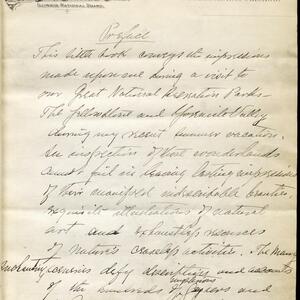 ILLINOIS NATIONAL GUARD.
Preface
This little book conveys the impressions
made upon me during a visit to
our Great National Recreation Parks –
The Yellowstone and Yosemite Valley
during my recent summer vacation.
An inspection of these wonderlands
cannot fail in leaving lasting impressions
of their manifold indescribable beauties,
exquisite illustrations of natural
art and exhaustless resources
of Nature's ceaseless activities. The Many
defy descriptions and accounts
of the hundreds of geysers and